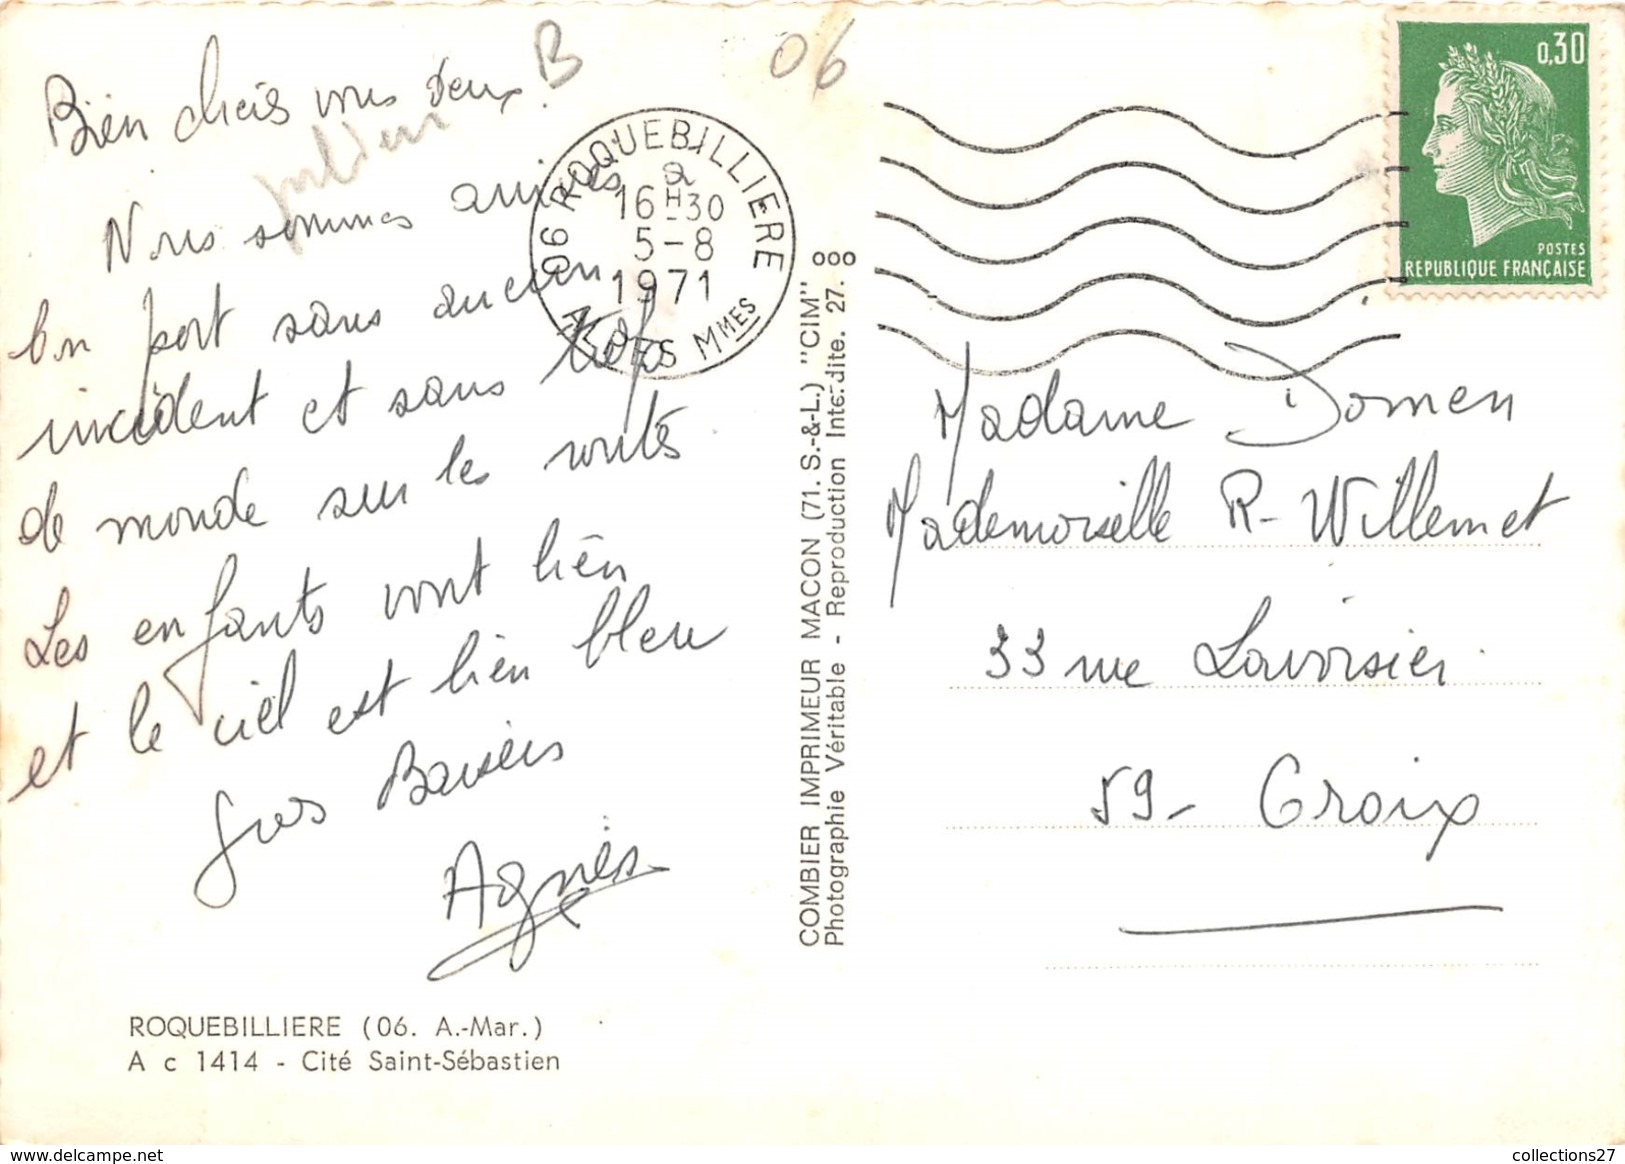 Bien chers vous deux. B
06
Nous sommes arrivés
à bon port sans aucun
incident et sans trop
de monde sur les routes
Les enfants vont bien
et le ciel est bien bleu
Gros Baisers
Agnès
ROQUEBILLIERE (06. A.-Mar.)
A c 1414 - Cité Saint-Sébastien
COMBIER IMPRIMEUR MACON (71. S.-&-L.) "CIM"
Photographie Véritable - Reproduction Interdite. 27. ooo
06 ROQUEBILLIERE
16 H 30
5-8
1971
ALPES MMES
0,30
POSTES
REPUBLIQUE FRANÇAISE
Madame Domen
Mademoiselle R. Willemet
33 rue Lavoisier
59 - Croix
collections27